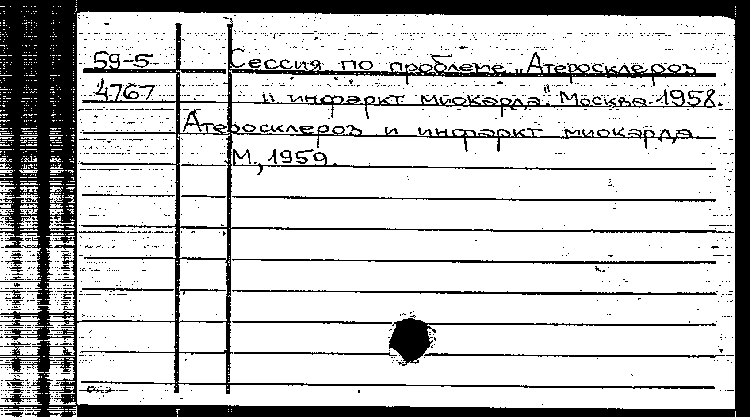 59-5 Сессия по проблеме „Атеросклероз
4767 и инфаркт миокарда". Москва. 1958.
Атеросклероз и инфаркт миокарда.
М., 1959.